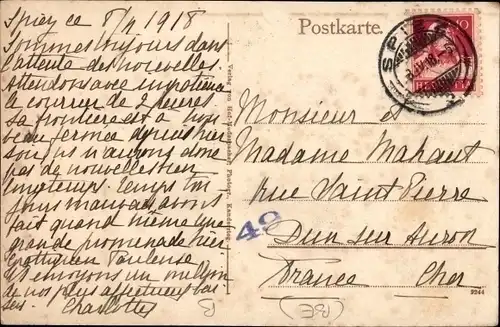 Spiez ce 8/4 1918
Sommes toujours dans
l'attente des nouvelles.
Attendons avec impatience
le courrier de 2 heures
la frontière est à nou-
veau fermée depuis hier
soir, n'aurons donc
pas de nouvelles bien
longtemps. Temps
plus mauvais avons
fait quand même une
grande promenade hier
envoyons un million
de nos plus affectueux bai-
sers. Charlotte
Postkarte.
SPIEZ
Monsieur et
Madame Mahaut
Rue Saint Pierre
Dun sur Auron
France Cher
49
Kandersteg.
9244
B
(BE)